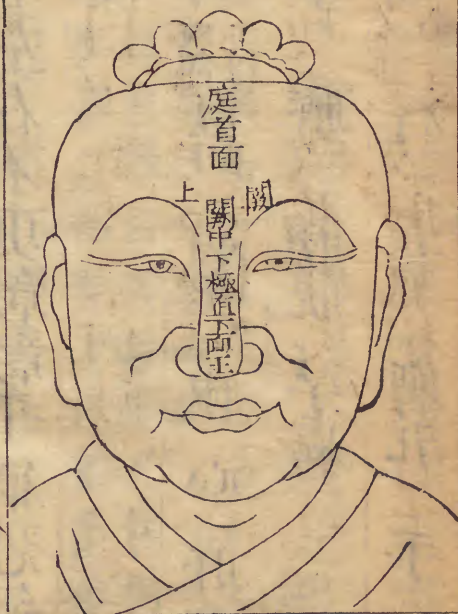 庭首面
闕上
闕中下極直下面王